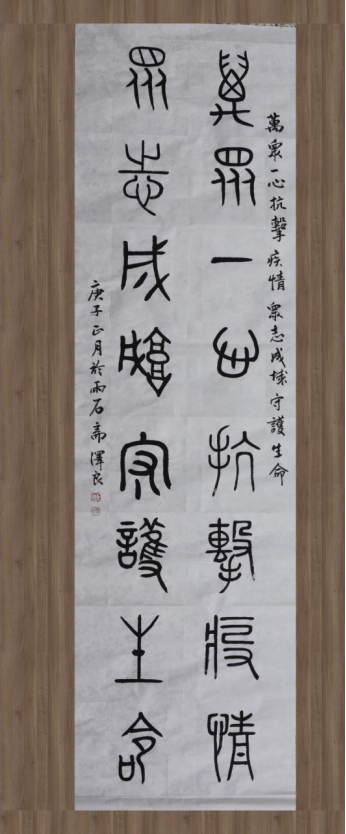 萬衆一心抗擊疫情衆志成城守護生命
萬眾一心抗擊疫情
眾志成城守護生命
庚子正月於雨石齋澤良